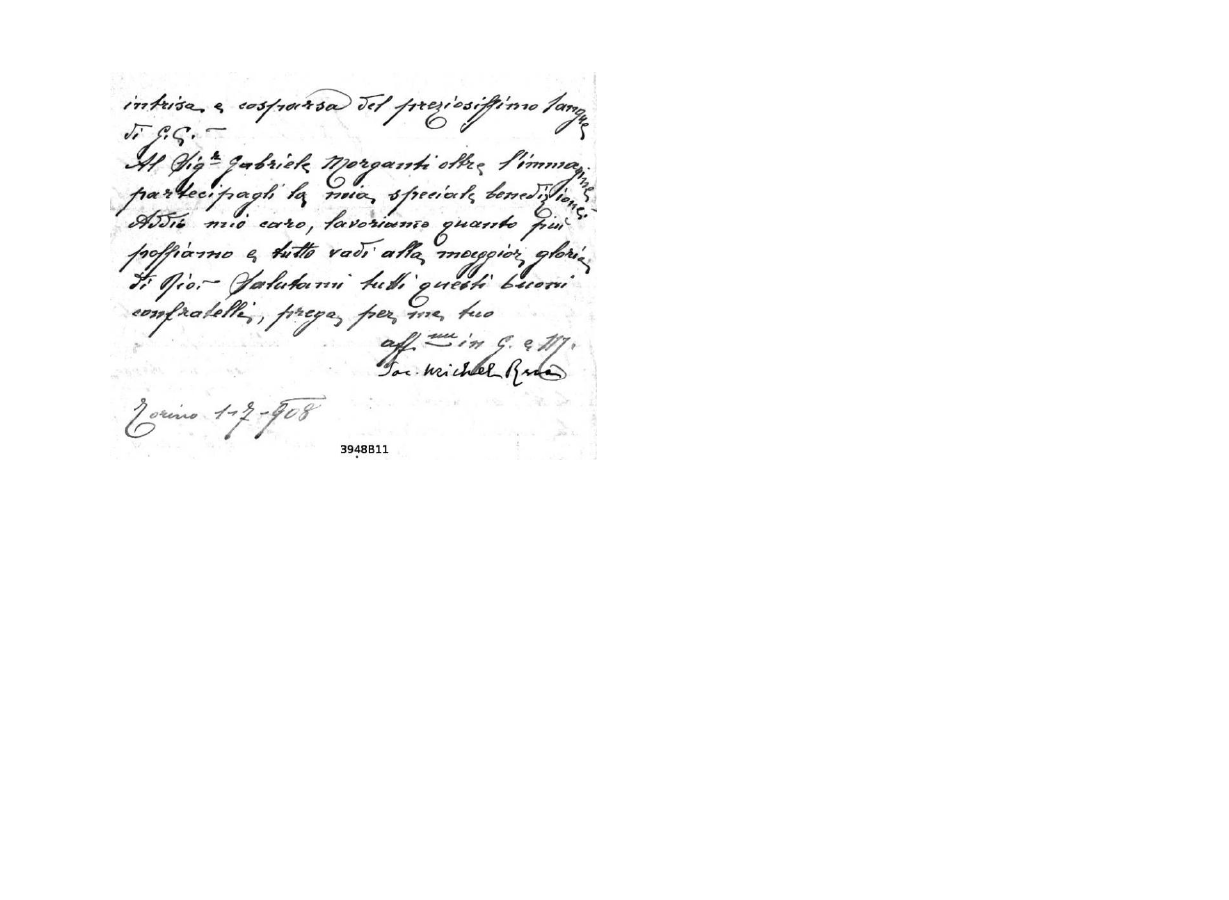 intrisa e cosparsa del preziosissimo sangue
di G.C. –
Al Sigr Gabriele Morganti oltre l'immagine
partecipagli la mia speciale benedizione.
Addio mio caro, lavoriamo quanto più
possiamo e tutto vadi alla maggior gloria
di Dio. – Salutami tutti questi buoni
confratelli, prega per me tuo
aff.mo in G. e M.
Sac. Michele Rua
Torino 1-7-908
3948B11